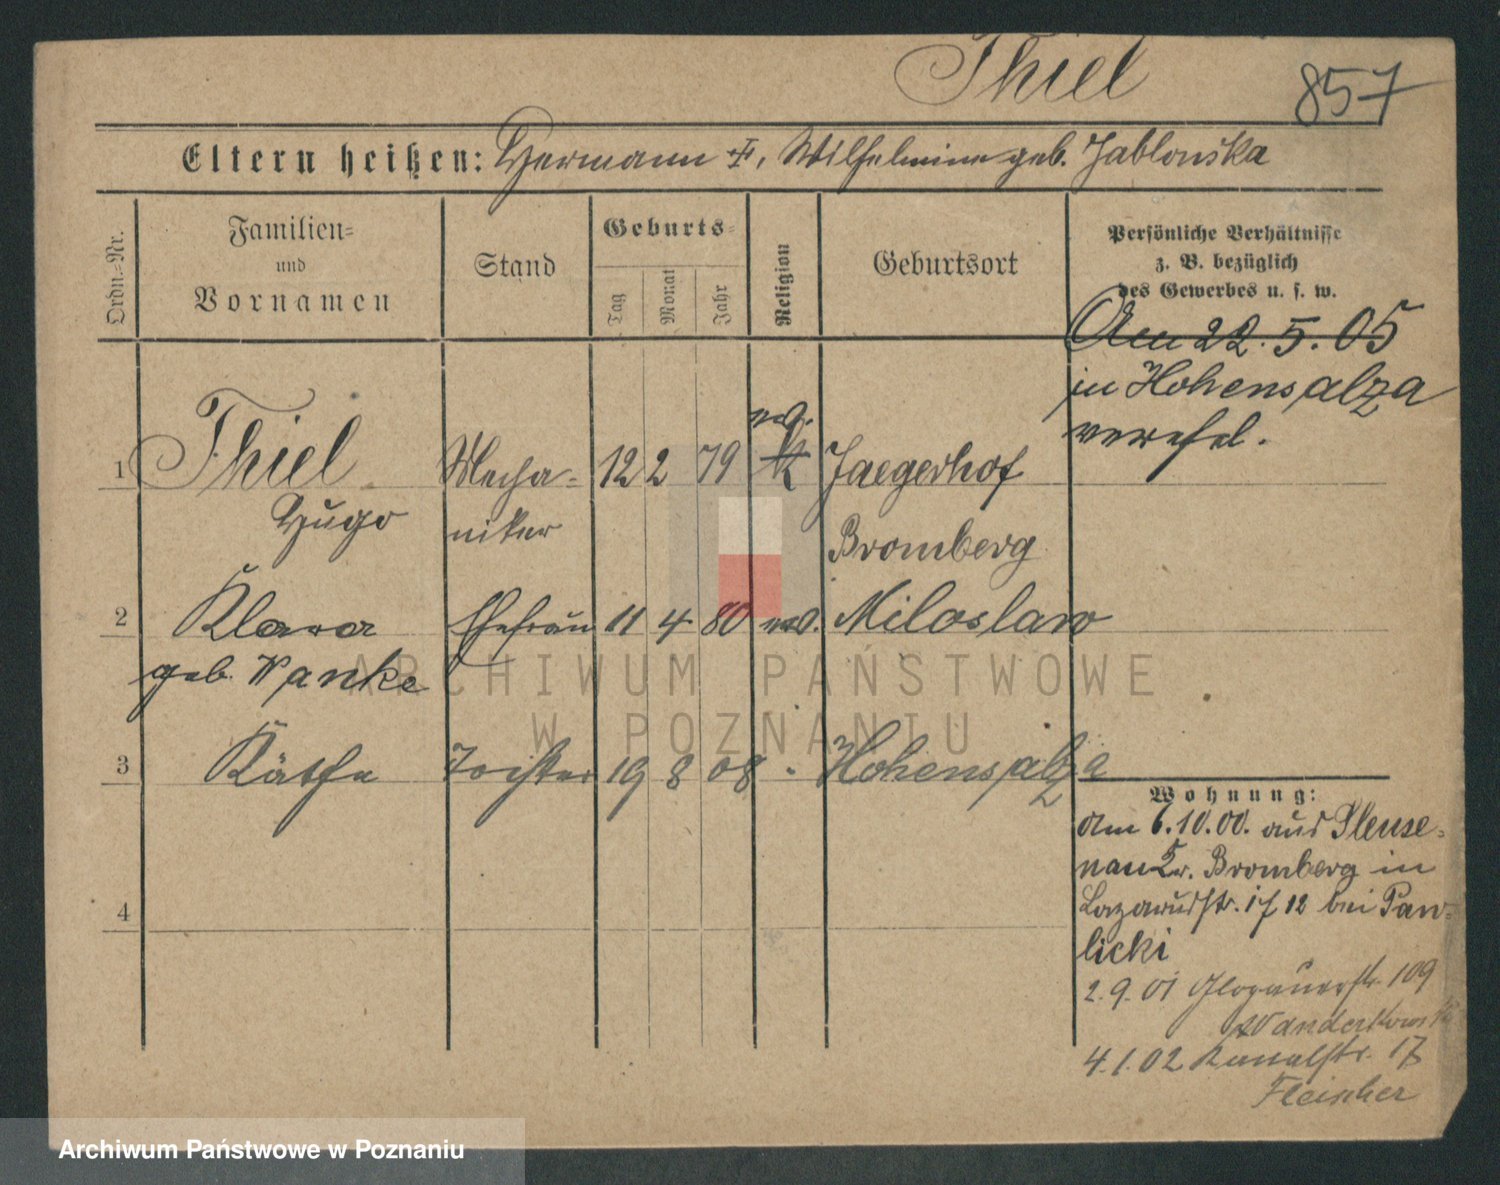 Thiel
857
Eltern heißen: Hermann †, Wilhelmine geb. Jablonska
Ordn.-Nr.
Familien-
und
Vornamen
Stand
Geburts-
Tag
Monat
Jahr
Religion
Geburtsort
Persönliche Verhältnisse
z. B. bezüglich
des Gewerbes u. s. w.
Am 22.5.05
in Hohensalza
verehel.
ev.
1 Thiel Mecha- 12 2 79 k Jaegerhof
Hugo niker Bromberg
2 Klara Ehefrau 11 4 80 ev. Miloslaw
geb. Wanke
3 Käthe Tochter 19 8 08 Hohensalza
4
Wohnung:
Am 6.10.00. aus
nau Kr. Bromberg in
Lazarusstr. 17 12 bei Paw-
licki
2.9.01 Glogauerstr. 109
4.1.02 Kanalstr. 17
Fleischer
ARCHIWUM PAŃSTWOWE
W POZNANIU
Archiwum Państwowe w Poznaniu